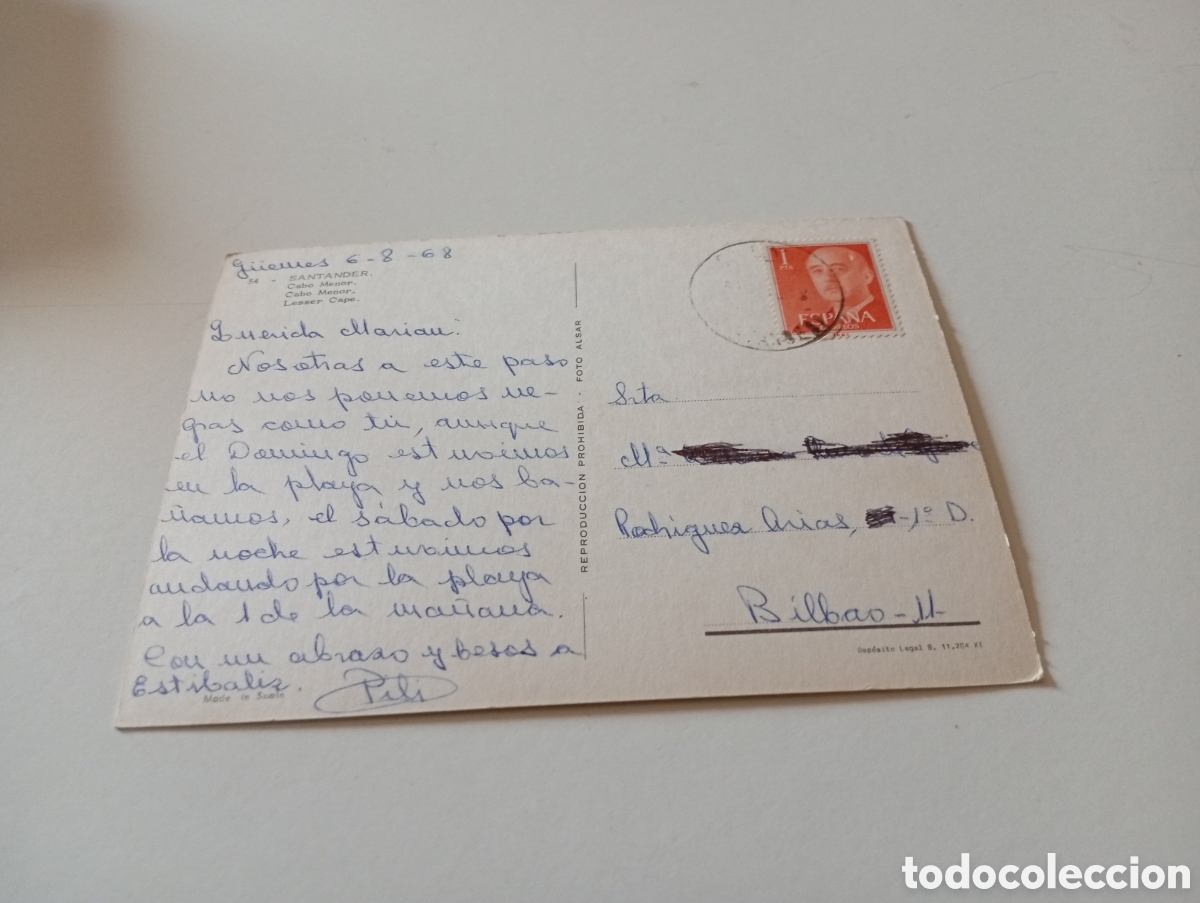 Güemes 6-8-68
54 - SANTANDER.
Cabo Menor.
Cabo Menor.
Lesser Cape.
Querida Marian:
Nosotras a este paso
no nos ponemos ne-
gras como tú, aunque
el Domingo estuvimos
en la playa y nos ba-
ñamos, el sábado por
la noche estuvimos
andando por la playa
a la 1 de la mañana.
Con un abrazo y besos a
Estibaliz. Pili
Made in Spain
REPRODUCCION PROHIBIDA · FOTO ALSAR
1
PTA
ESPAÑA
CORREOS
Srta
Mª
Rodriguez Arias, -1º D.
Bilbao-11
Depósito Legal B. 11,204 XI
todocoleccion